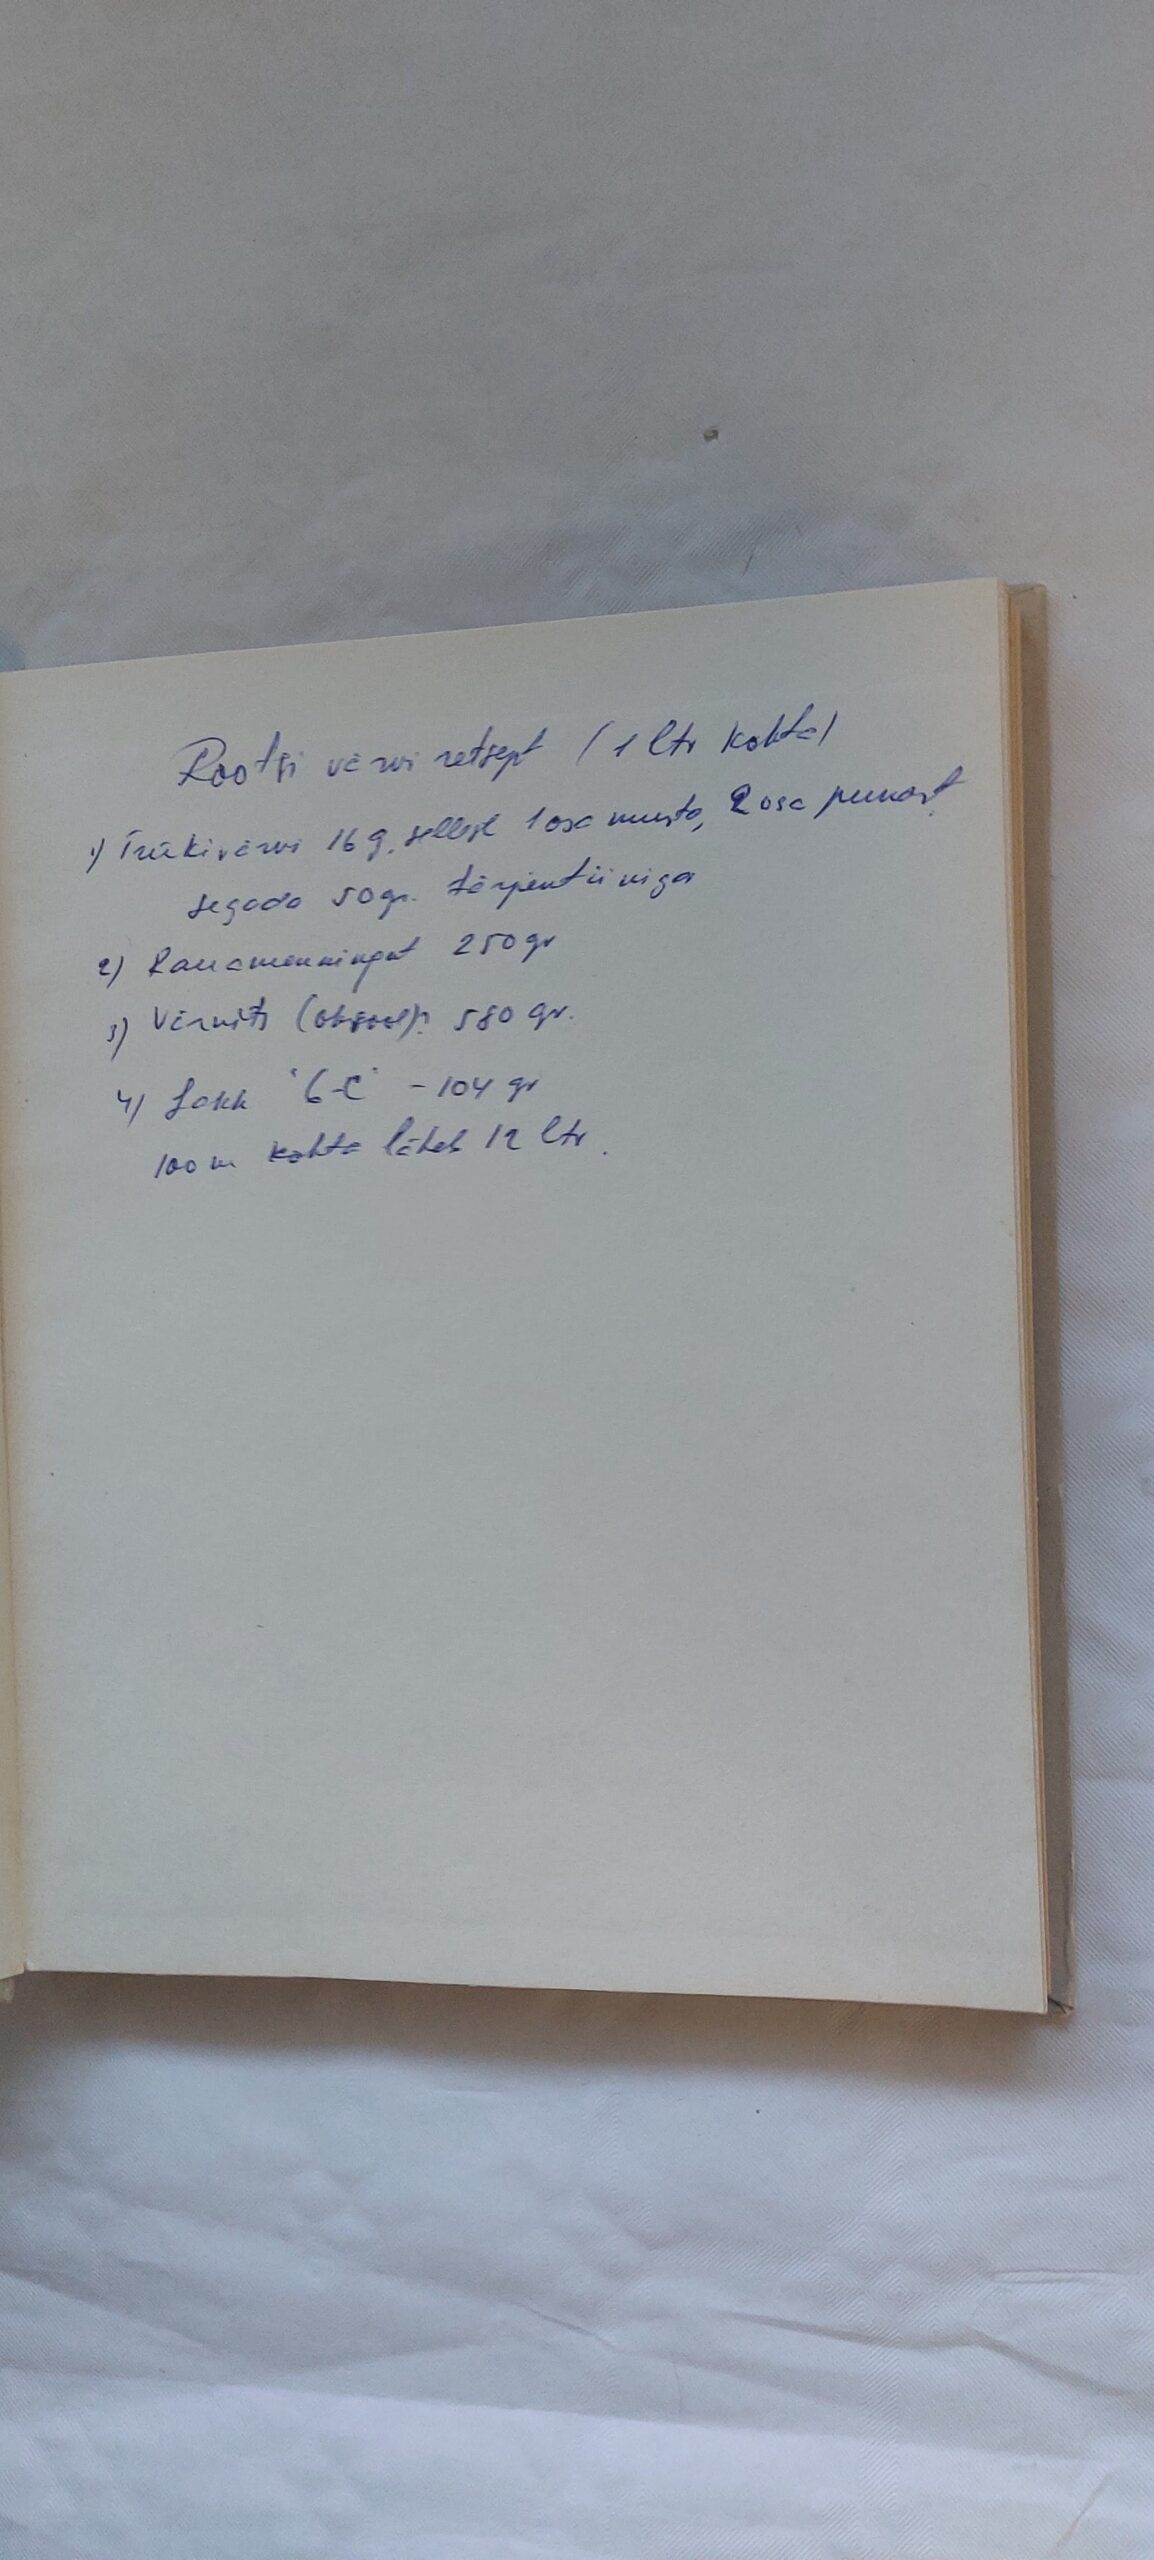 Rootsi värvi retsept (1 ltr kohta)
1) Trükivärvi 16 g. sellest 1 osa musta, 2 osa punast
segada 50 gr. tärpentiiniga
2) Rauamenningut 250 gr
3) Värnits 580 gr.
4) Lakk "6-C" - 104 gr
100 m kohta läheb 12 ltr.